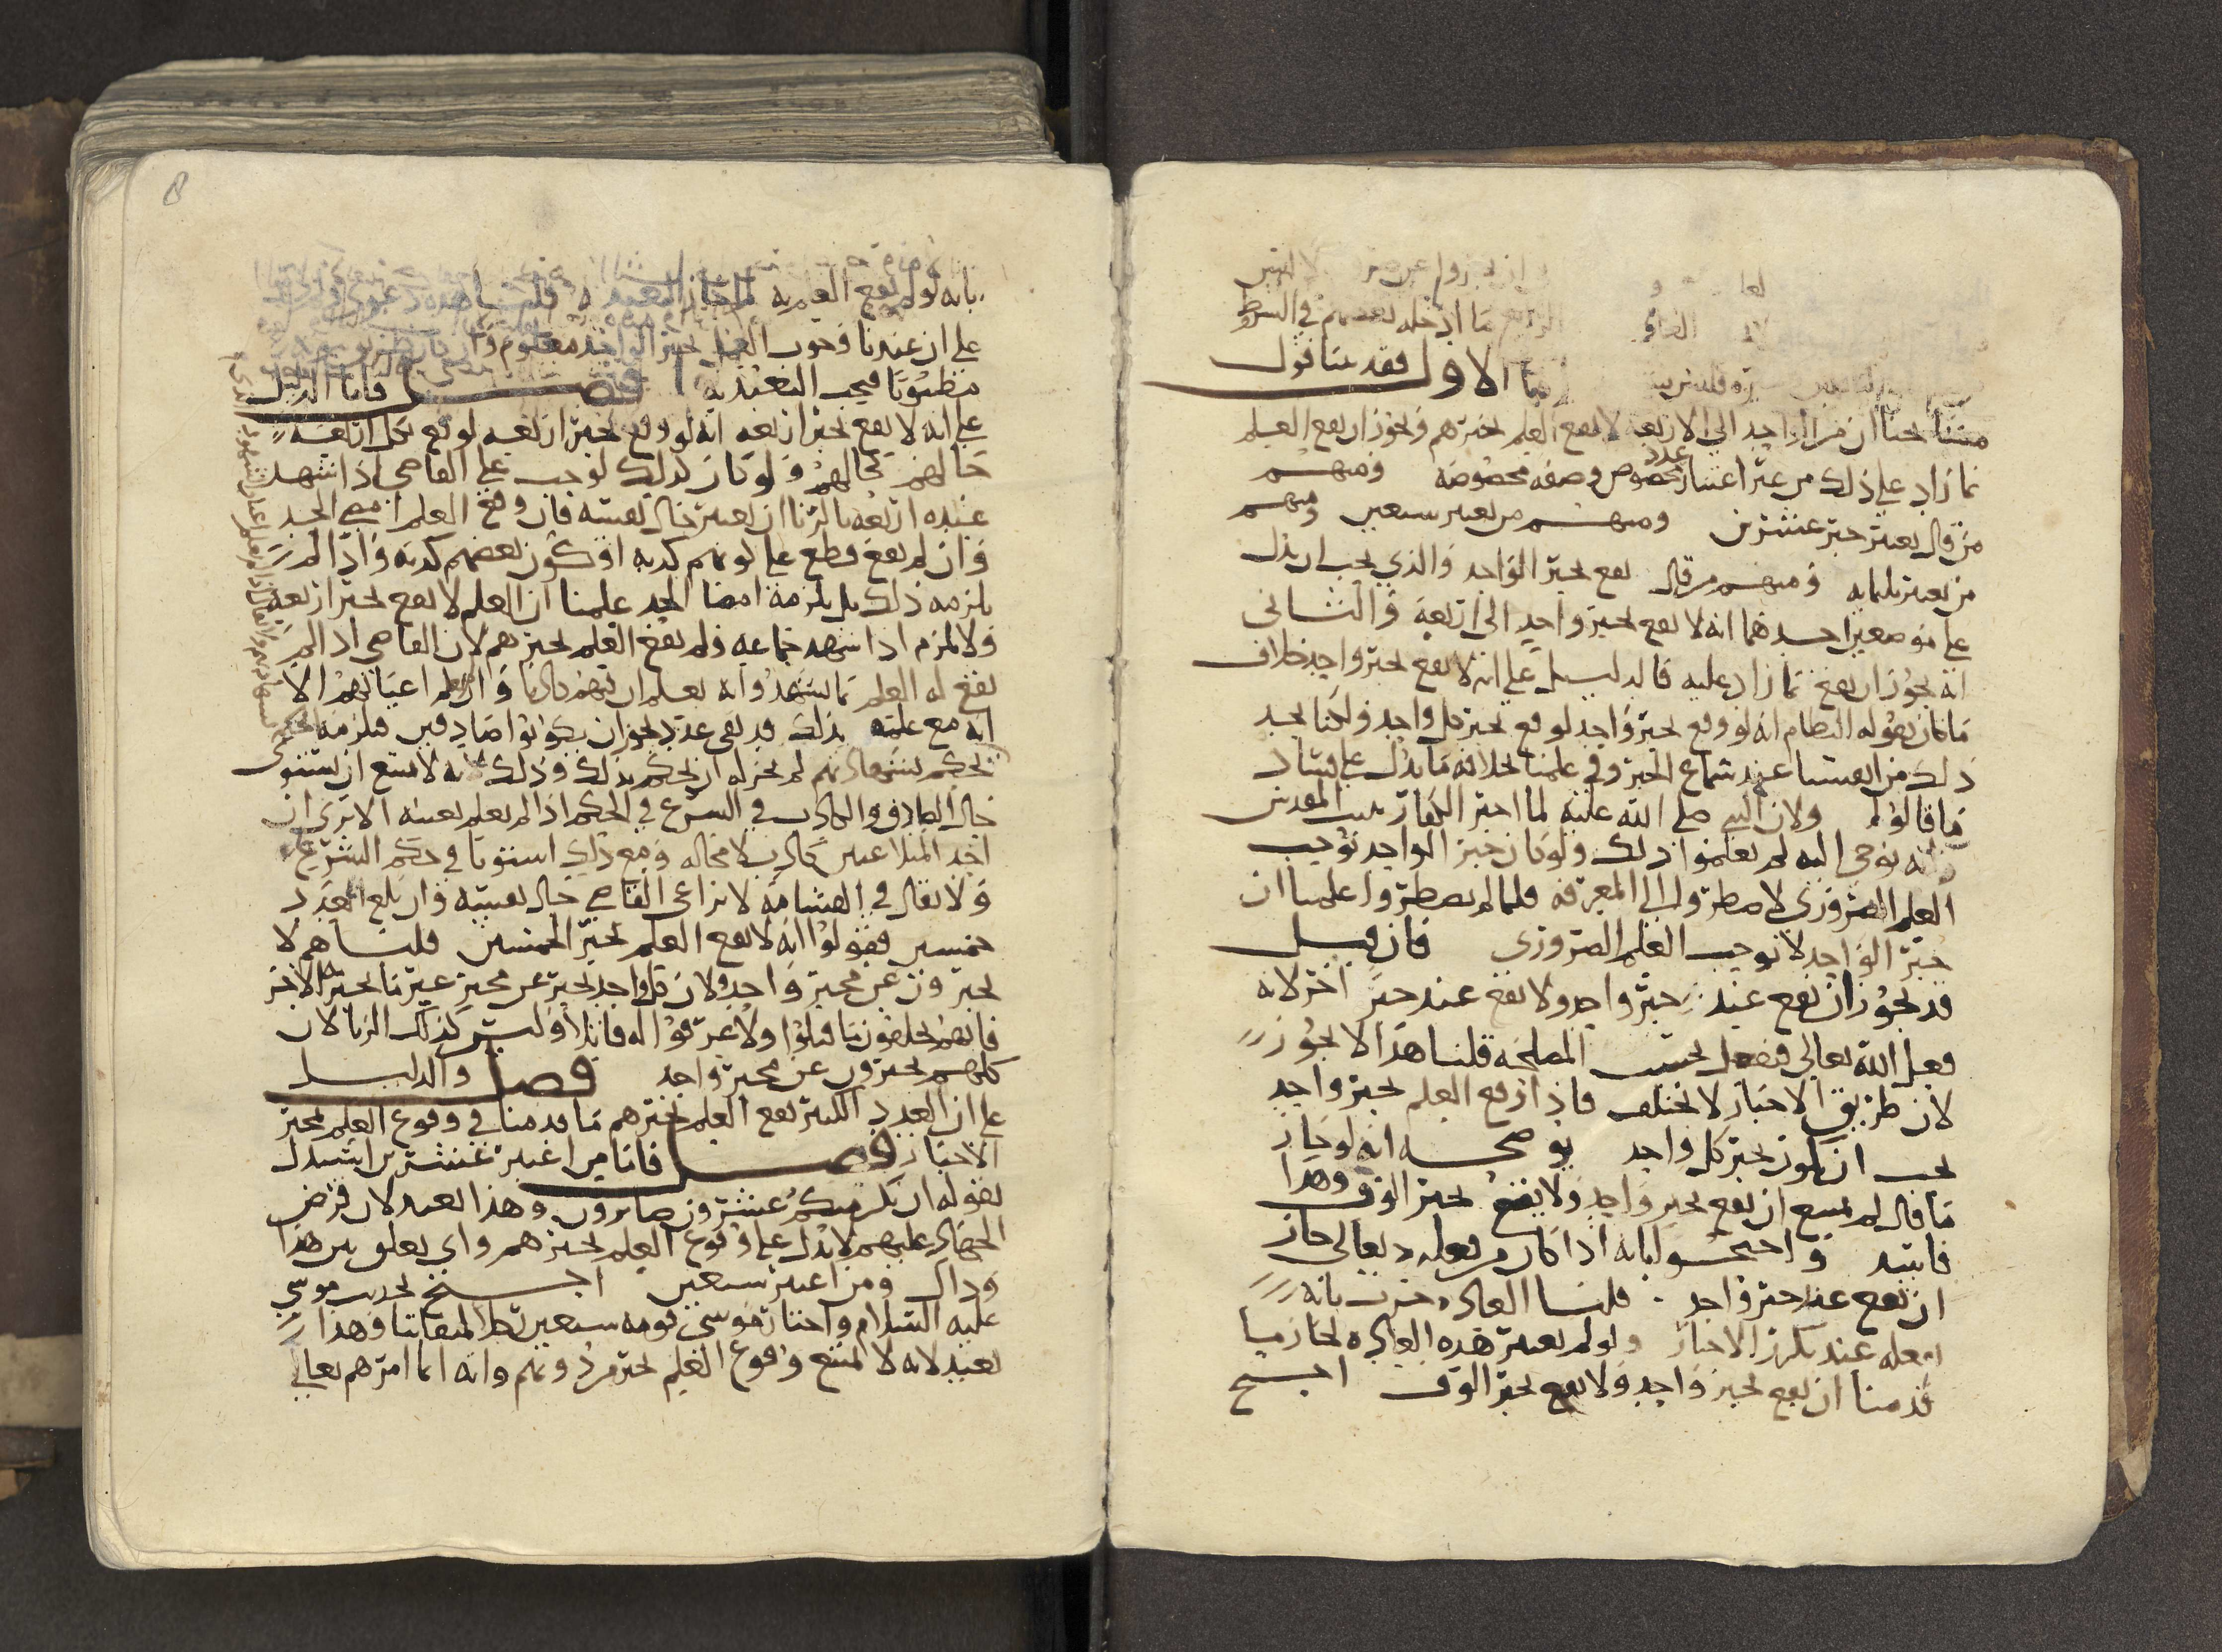 وان يخبروا عن
ما ادخله بعضهم في الشرط
الاول فقد بينا قول
مشايخنا ان من الواحد الى الاربعة لا يقع العلم بخبرهم ويجوز ان يقع العلم
بما زاد على ذلك من غير اعتبار عدد مخصوص وصفه مخصوصه ومنهم
من قال يعتبر خبر عشرين ومنهم من يعتبر سبعين ومنهم
من يعتبر ثلثمايه ومنهم من قال يقع بخبر الواحد والذي يجب ان يدل
على موضعين احدهما انه لا يقع بخبر واحد الى اربعة والثاني
انه يجوز ان يقع بما زاد عليه فالدليل على انه لا يقع بخبر واحد خلاف
ما كان يقوله النظام انه لو وقع بخبر واحد لوقع بخبر كل واحد ولكنا نجد
ذلك من انفسنا عند سماع الخبر وفي علمنا بخلافه ما يدل على فساد
ما قالوه ولان النبي صلى الله عليه لما اخبر الكفار ببيت المقدس
وانه يوحى اليه لم يعلموا ذلك ولو كان خبر الواحد يوجب
العلم الضروري لاضطروا الى المعرفه فلما لم يضطروا علمنا ان
خبر الواحد لا يوجب العلم الضروري فان قيل
قد يجوز ان يقع عند خبر واحد ولا يقع عند خبر اخر لانه
فعل الله تعالى فيفعل بحسب المصلحه قلنا هذا لا يجوز
لان طريق الاخبار لا تختلف فاذا وقع العلم بخبر واحد
يجب ان يكون بخبر كل واحد يوضحه انه لو جاز
ما قال لم يمتنع ان يقع بخبر واحد ولا يقع بخبر الوف وهذا
فاسد واحتجوا بانه اذا كان من فعله تعالى جاز
ان يقع عند خبر واحد قلنا العاده جرت بانه
يفعله عند تكرر الاخبار ولو لم يعتبر هذه العاده لجاز ما
قدمنا ان يقع بخبر واحد ولا يقع بخبر الوف احتج
بانه لو لم يقع العلم به لما جاز التعبد به قلنا هذه دعوى
على ان عندنا وجوب العمل بخبر الواحد معلوم وان كان
مظنونا فيجب التعبد به فصل فاما الدليل
على انه لا يقع بخبر اربعه انه لو وقع بخبر اربعه لوقع بكل اربعه
حالهم كحالهم ولو كان كذلك لوجب على القاضي اذا شهد
عنده اربعه بالزنا ان يعتبر حال نفسه فان وقع العلم امضى الحد
وان لم يقع قطع على كونهم كذبه او كون بعضهم كذبه واذا لم
يلزمه ذلك بل يلزمه امضا الحد علمنا ان العلم لا يقع بخبر اربعه
ولا يلزم اذا شهد جماعه ولم يقع العلم بخبرهم لان القاضي اذا لم
يقع له العلم بما يشهدوا به يعلم ان فيهم كاذبا وان لم يعلم اعيانهم الا
انه مع علمه بذلك قد بقي عدد يجوز ان يكونوا صادقين فيلزمه الحكم
يحكم بشهادتهم لم يجز له ان يحكم بذلك وذلك لانه لا يمتنع ان يستوي
حال الصادق والكاذب في الشرع في الحكم اذا لم يعلم بعينه الا ترى ان
احد المتلاعنين كاذب لا محاله ومع ذلك استويا في حكم الشرع
ولا يقال في القسامه لا يراعي القاضي حال نفسه وان بلغ العدد
خمسين فقولوا انه لا يقع العلم بخبر الخمسين قلنا هم لا
يخبرون عن مخبر واحد ولان كل واحد يخبر عن مخبر غير ما يخبر به الاخر
فانهم يحلفون ما قتلوا ولا عرفوا له قاتلا وليس كذلك الزنا لان
كلهم يخبرون عن مخبر واحد فصل والدليل
على ان العدد الكثير يقع العلم بخبرهم ما قدمنا في وقوع العلم بمخبر
الاخبار فصل فاما من اعتبر عشرين استدل
بقوله ان يكن منكم عشرون صابرون وهذا بعيد لان فرض
الجهاد عليهم لا يدل على وقوع العلم بخبرهم واي تعلق بين هذا
وذاك ومن اعتبر سبعين احتج بحديث موسى
عليه السلام واختار موسى قومه سبعين رجلا لميقاتنا وهذا
بعيد لانه لا يمتنع وقوع العلم بخبر من دونهم وانه انما امرهم تعالى